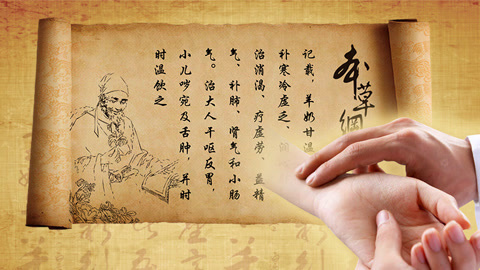 本草綱
记载，羊奶甘温
补寒冷虚乏、
治消渴、疗虚劳、益精
气、补肺、肾气和小肠
气。治大人干呕反胃，
小儿哕宛及舌肿，并时
时温饮之